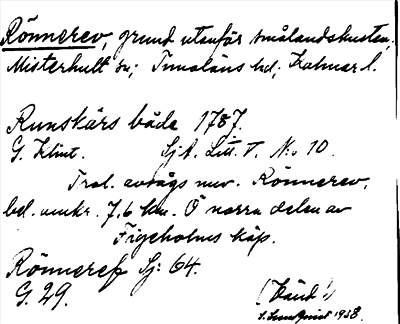 Rönnerev, grund utanför smålandskusten,
Misterhult sn; Tunaläns hd; Kalmar l.
Runskärs båda 1787.
G. Klint. Sj A. Litt. V. N:o 10.
Trol. avsågs nuv. Rönnerev,
bel. omkr. 7,6 km. Ö norra delen av
Figeholms kåp.
Rönneref Sj: 64.
G. 29.
(Känd!)
1938